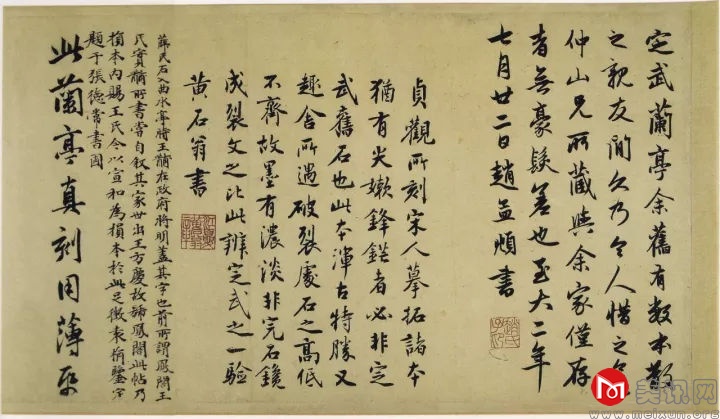 定武蘭亭余舊有數本散
之親友間久乃令人惜之今
仲山兄所藏與余家僅存
者無豪髮差也至大二年
七月廿二日趙孟頫書
貞觀所刻宋人摹拓諸本
猶有尖嫰鋒鎝者必非定
武舊石也此本渾古特勝又
趣舍所遇破裂處石之高低
不齊故墨有濃淡非完石鐫
成裂文之比此辨定武之一驗
黄石翁書
薛氏石入西水寧時王黼在政府將明蓋其字也前所謂鳳閣王
氏實黼所書當自叙其家世出王方慶故稱鳳閣此帖乃
損本內賜王氏令以宣和為損本於此足徵袁桷鑒定
題于張德常書圖
此蘭亭真刻用薄紙
趙氏子昂
M
美讯网
www.meixun.org